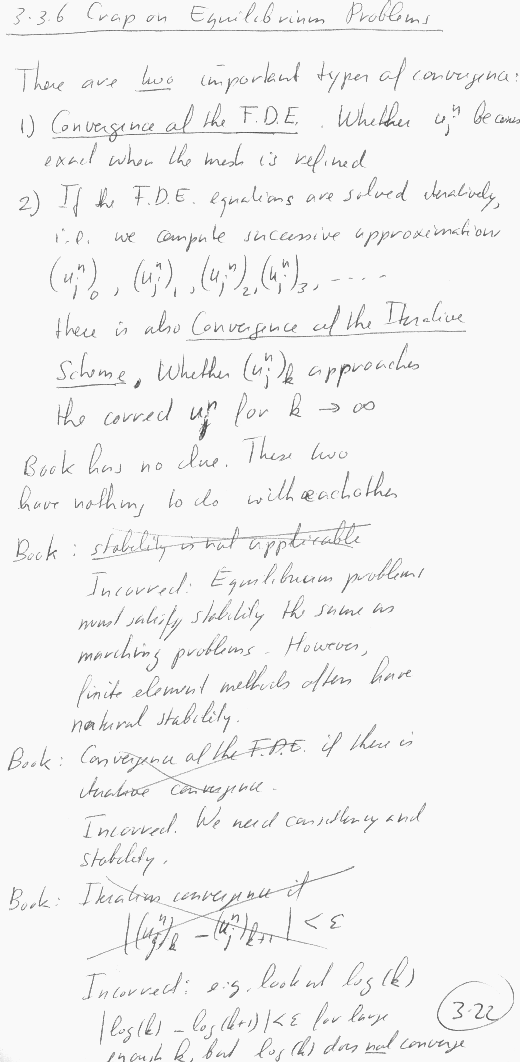 3.3.6 Crap on Equilibrium Problems
There are two important types of convergence:
1) Convergence of the F.D.E. Whether u_j^n becomes
exact when the mesh is refined
2) If the F.D.E. equations are solved iteratively,
i.e. we compute successive approximations
(u_j^n)_0, (u_j^n)_1, (u_j^n)_2, (u_j^n)_3, -----
there is also Convergence of the Iterative
Scheme. Whether (u_j^n)_k approaches
the correct u_j^n for k → ∞
Book has no clue. These two
have nothing to do with eachother
Book: stability is not applicable
Incorrect: Equilibrium problems
must satisfy stability the same as
marching problems. However,
finite element methods often have
natural stability.
Book: Convergence of the F.D.E. if there is
iterative convergence.
Incorrect. We need consistency and
stability.
Book: Iterative convergence if
|(u_j^n)_k - (u_j^n)_{k+1}| < ε
Incorrect: e.g. look at log(k)
|log(k) - log(k+1)| < ε for large
enough k, but log(k) does not converge
3-22